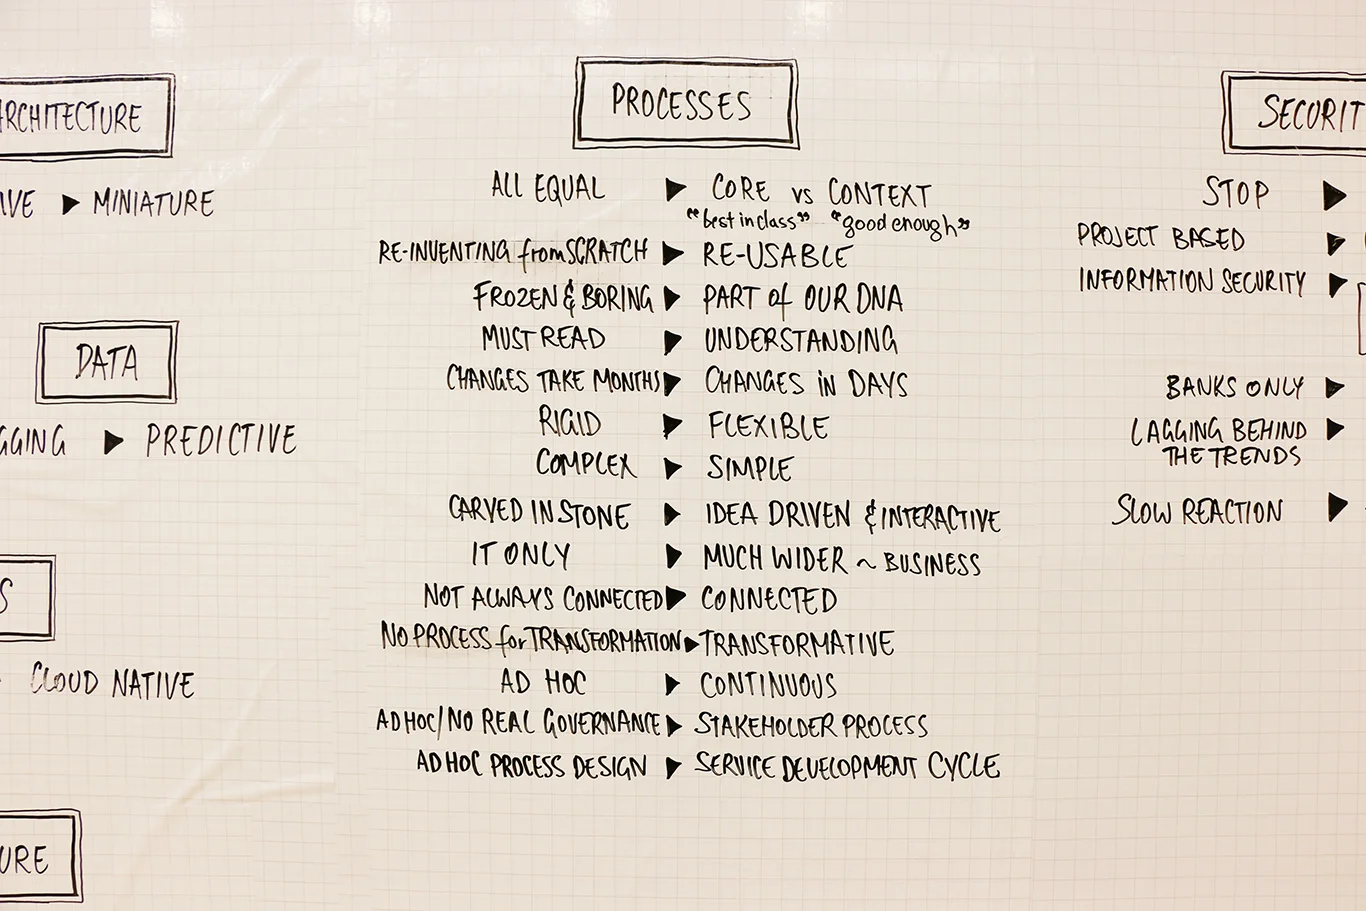 ARCHITECTURE
▶ MINIATURE
DATA
▶ PREDICTIVE
S
CLOUD NATIVE
URE
PROCESSES
ALL EQUAL ▶ CORE vs CONTEXT
"best in class" "good enough"
RE-INVENTING from SCRATCH ▶ RE-USABLE
FROZEN & BORING ▶ PART of OUR DNA
MUST READ ▶ UNDERSTANDING
CHANGES TAKE MONTHS ▶ CHANGES in DAYS
RIGID ▶ FLEXIBLE
COMPLEX ▶ SIMPLE
CARVED IN STONE ▶ IDEA DRIVEN & INTERACTIVE
IT ONLY ▶ MUCH WIDER ~ BUSINESS
NOT ALWAYS CONNECTED ▶ CONNECTED
NO PROCESS for TRANSFORMATION ▶ TRANSFORMATIVE
AD HOC ▶ CONTINUOUS
AD HOC/NO REAL GOVERNANCE ▶ STAKEHOLDER PROCESS
AD HOC PROCESS DESIGN ▶ SERVICE DEVELOPMENT CYCLE
SECURIT
STOP ▶
PROJECT BASED ▶
INFORMATION SECURITY ▶
BANKS ONLY ▶
LAGGING BEHIND ▶
THE TRENDS
SLOW REACTION ▶